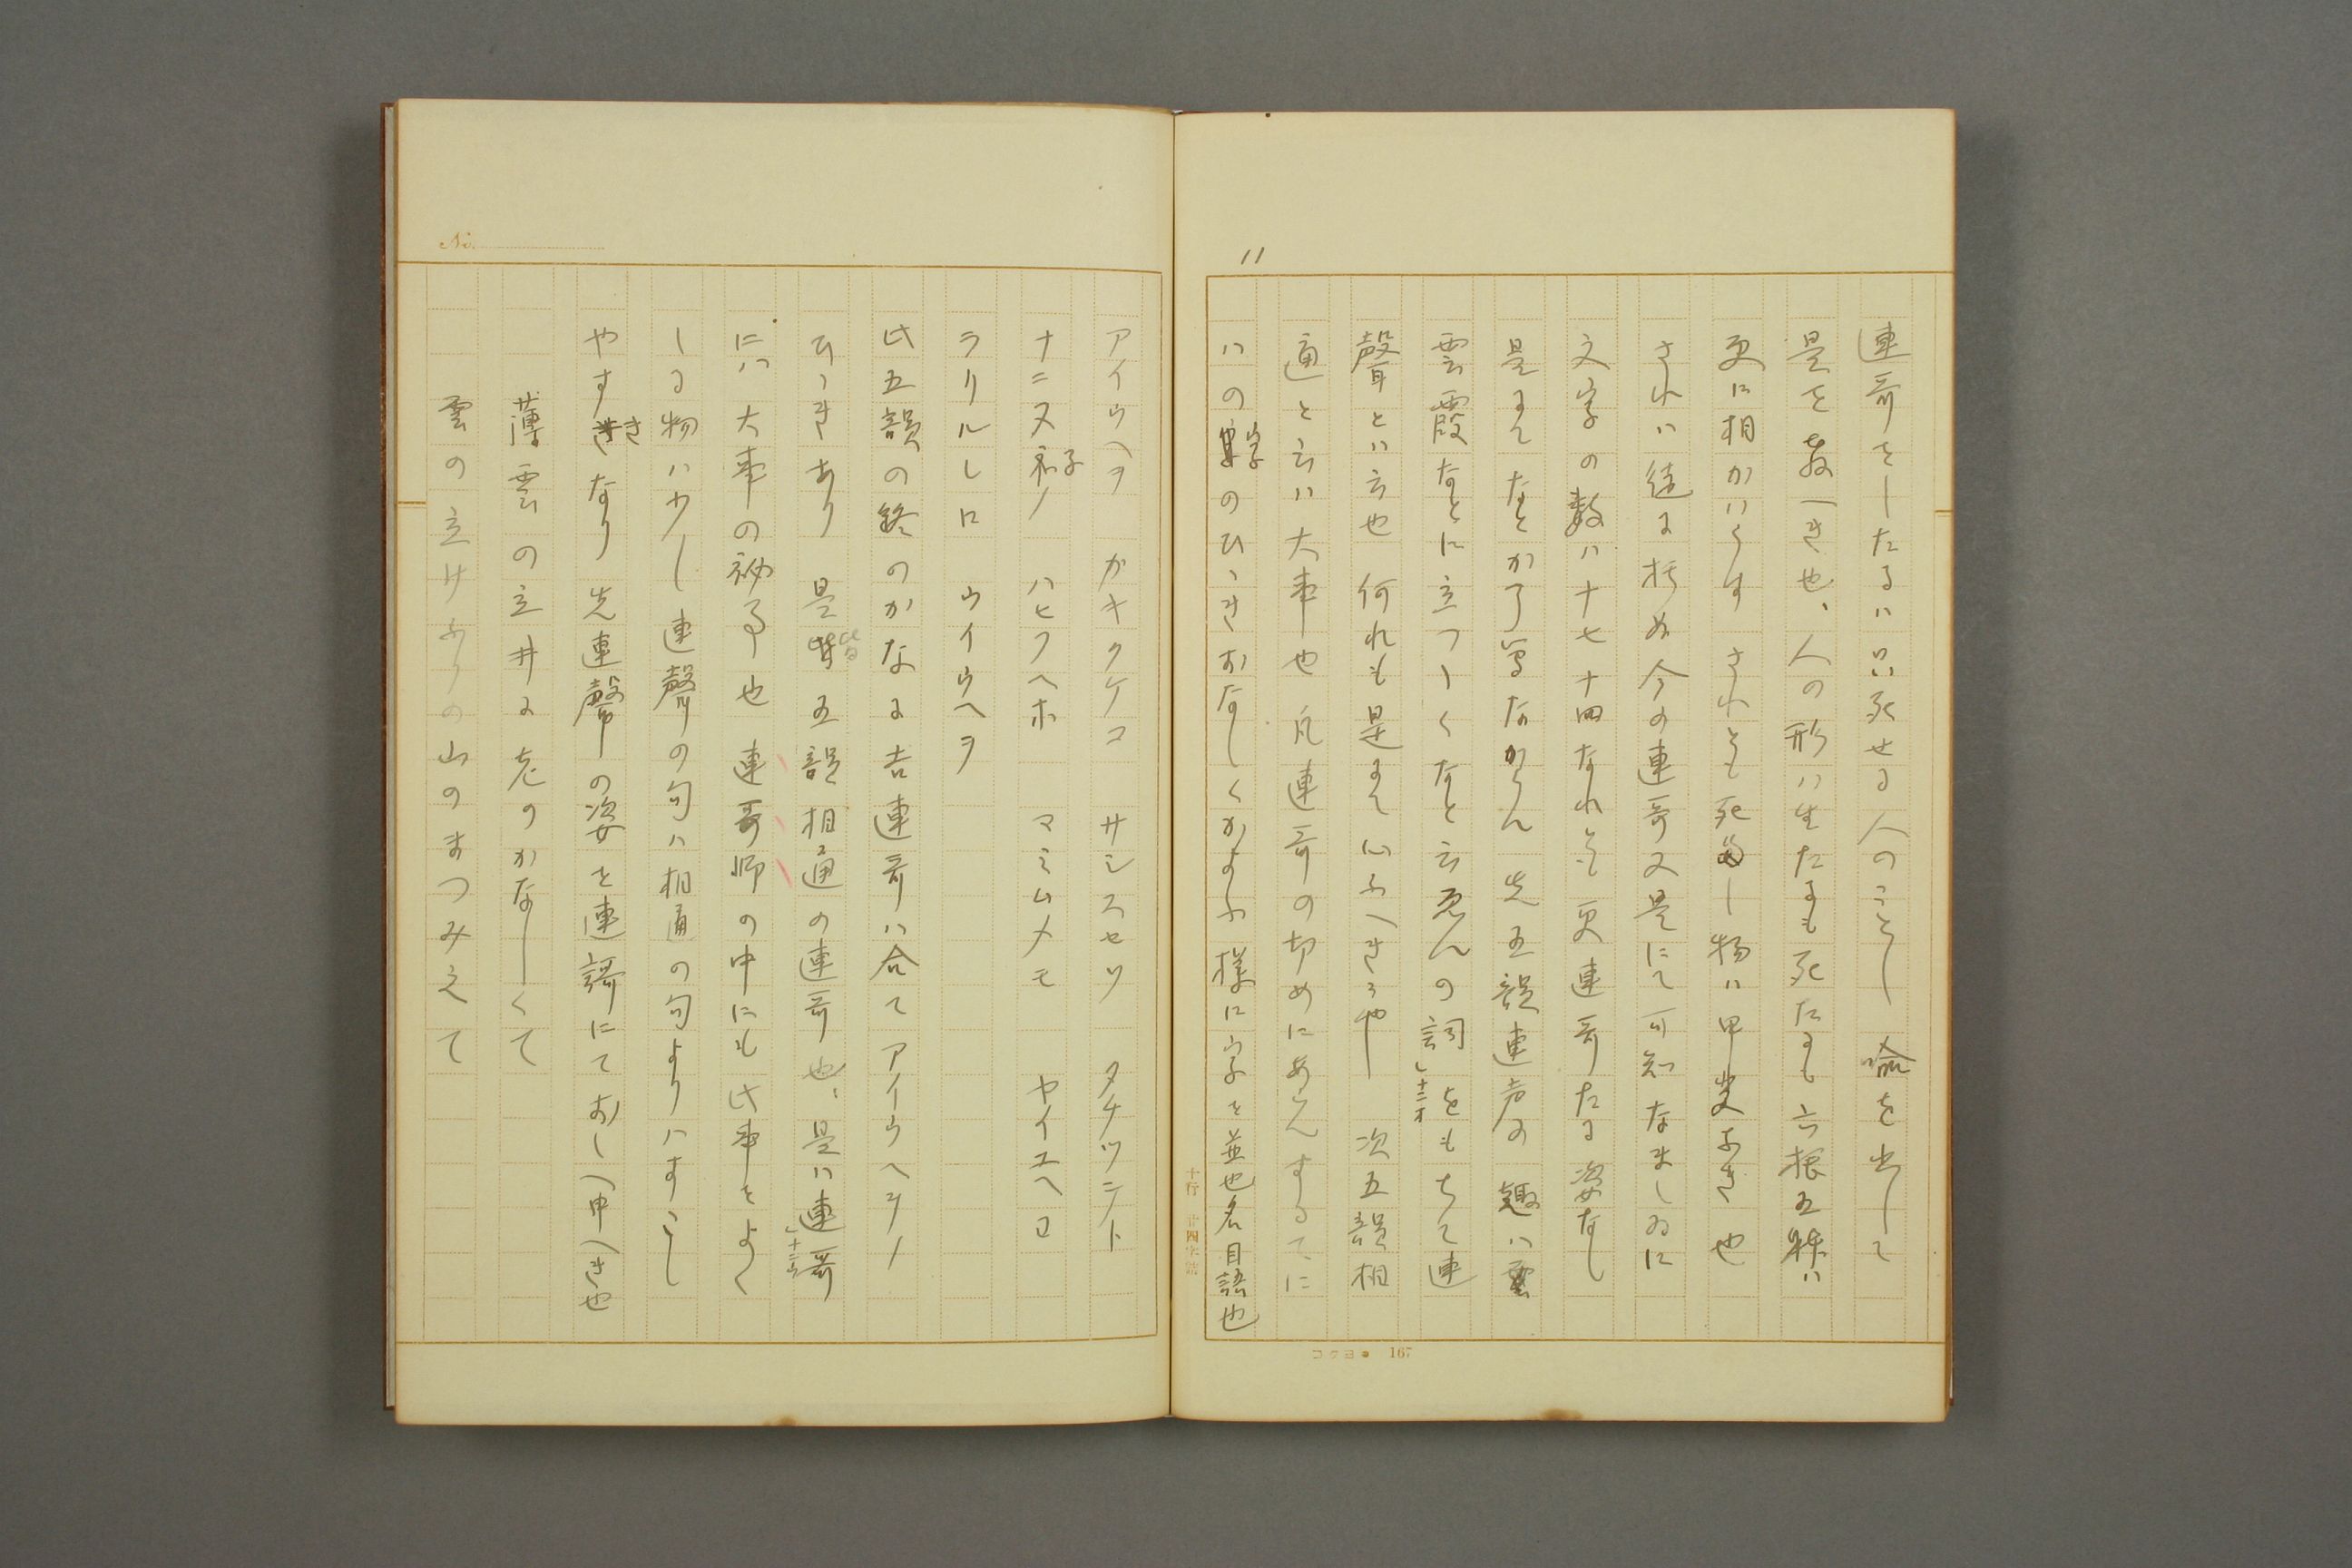 11
連哥をしたるハ只死せる人のことし 喩を出して
是を教へき也、人の形ハ生たるも死たるも六根五躰ハ
更に相かハらす されとも死し物ハ甲斐なき也
されハ徒に 今の連哥又是にて可知 なましゐに
文字の数ハ十七十四なれとも更連哥たる姿なし
是まてなと なからん 先五韻連声の趣ハ
雲霞なとに立つゝくなと云てんの詞」十二オをもちて連
聲とハ云也 何れも是まて心ふへき 次五韻相
通と云ハ大事也 凡連哥の切めにあらんするてに
ハの字のひゝきおなしくかよふ様に字を並也名目語也
コクヨ 167
十行 廿四字詰
No.
アイウヘヲ カキクケコ サシスセソ タチツテト
ナニヌ子ノ ハヒフヘホ マミムメモ ヤイユヘヨ
ラリルレロ ワイウヘヲ
此五韻の終のかなに吉連哥ハ合てアイウヘヲノ
ひゝきあり 是皆五韻相通の連哥也、是ハ連謌」十二ウ
にハ大事の秘事也 連哥師の中にも此事をよく
しる物ハ少し 連聲の句ハ相通の句よりハすこし
やすきなり 先連聲の姿を連謌にておしへ申へき也
薄雲の立井に老のかなしくて
雲の立けふりの山のまつみえて